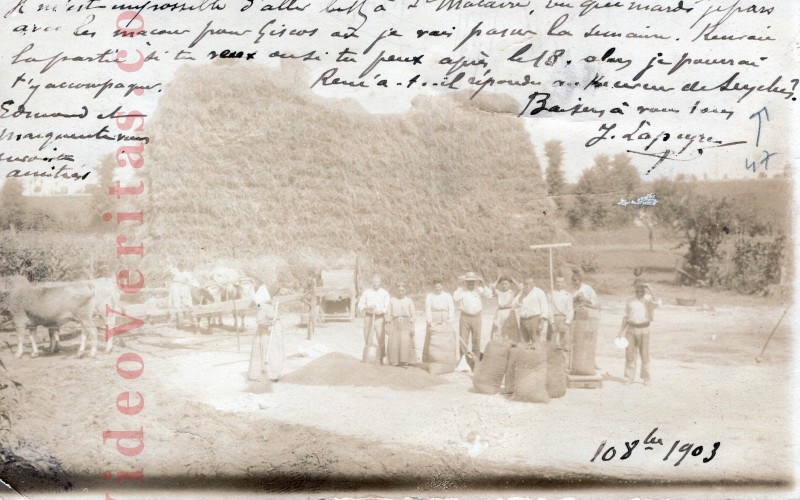 Il m'est impossible d'aller à St Macaire, vu que mardi je pars
avec les macons pour Giscos où je vais passer la semaine. Remvoie
la partie si tu veux ou si tu peux après le 18. alors je pourrai
t'y accompagner.
René a-t-il répondu au Receveur de Seyches?
Baisers à vous tous
J. Lapeyre
47
Edmond et
Marguerite vous
amitiés
10 8bre 1903
videoveritas.co